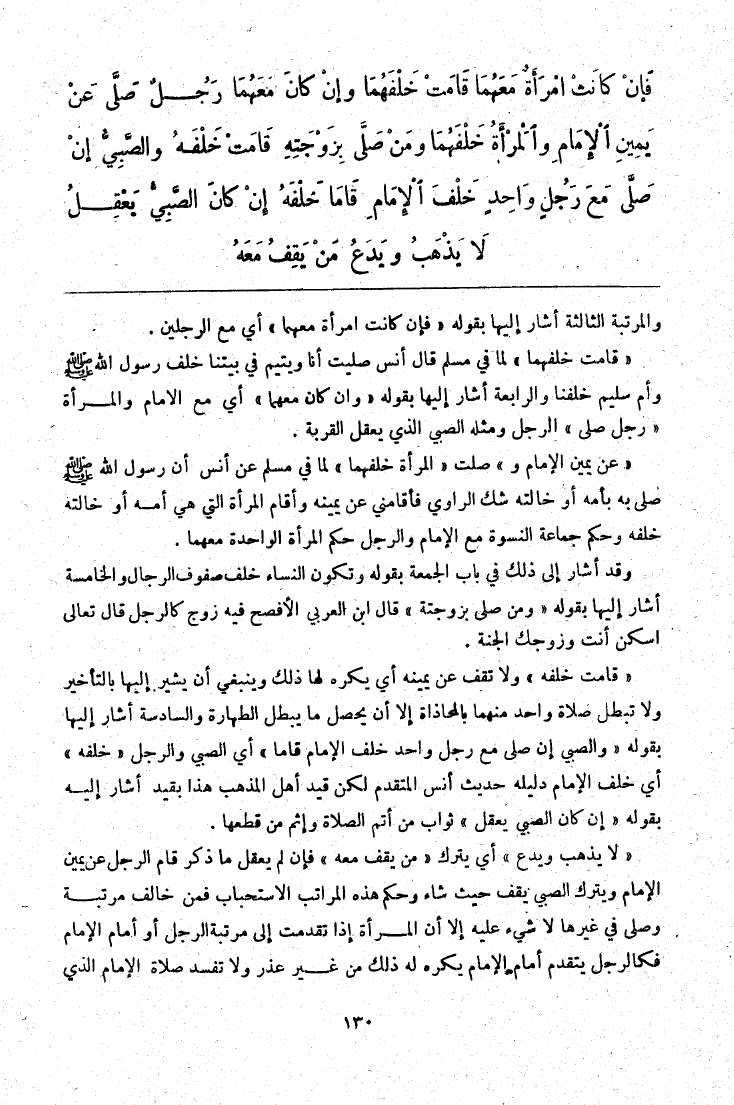 فَإِنْ كَانَتْ امْرَأَةٌ مَعَهُمَا قَامَتْ خَلْفَهُمَا وإنْ كَانَ مَعَهُمَا رَجُــلٌ صَلَّى عَنْ
يَمِينِ ٱلْإِمَامِ وٱلْمَرْأَةُ خَلْفَهُمَا ومَنْ صَلَّى بِزَوْجَتِهِ قَامَتْ خَلْفَـهُ والصَّبِيُّ إنْ
صَلَّى مَعَ رَجُلٍ وَاحِدٍ خَلْفَ ٱلْإِمَامِ قَامَا خَلْفَهُ إنْ كَانَ الصَّبِيُّ يَعْقِــلُ
لَا يَذْهَبُ ويَدَعُ مَنْ يَقِفُ مَعَهُ
والمرتبة الثالثة أشار إليها بقوله « فإن كانت امرأة معهما » أي مع الرجلين .
« قامت خلفهما » لما في مسلم قال أنس صليت أنا ويتيم في بيتنا خلف رسول الله ﷺ
وأم سليم خلفنا والرابعة أشار إليها بقوله « وان كان معهما » أي مع الامام والمـــرأة
« رجل صلى » الرجل ومثله الصبي الذي يعقل القربة .
« عن يمين الإمام و » صلت « المرأة خلفهما » لما في مسلم عن أنس أن رسول الله ﷺ
صلى به بأمه أو خالته شك الراوي فأقامني عن يمينه وأقام المرأة التي هي أمـه أو خالته
خلفه وحكم جماعة النسوة مع الإمام والرجل حكم المرأة الواحدة معهما .
وقد أشار إلى ذلك في باب الجمعة بقوله وتكون النساء خلف صفوف الرجال والخامسة
أشار إليها بقوله « ومن صلى بزوجتة » قال ابن العربي الأفصح فيه زوج كالرجل قال تعالى
اسكن أنت وزوجك الجنة .
« قامت خلفه » ولا تقف عن يمينه أي يكره لها ذلك وينبغي أن يشير إليها بالتأخير
ولا تبطل صلاة واحد منهما بالمحاذاة إلا أن يحصل ما يبطل الطهارة والسادسة أشار إليها
بقوله « والصبي إن صلى مع رجل واحد خلف الإمام قاما » أي الصبي والرجل « خلفه »
أي خلف الإمام دليله حديث أنس المتقدم لكن قيد أهل المذهب هذا بقيد أشار إليــه
بقوله « إن كان الصبي يعقل » ثواب من أتم الصلاة وإثم من قطعها .
« لا يذهب ويدع » أي يترك « من يقف معه » فإن لم يعقل ما ذكر قام الرجل عن يمين
الإمام ويترك الصبي يقف حيث شاء وحكم هذه المراتب الاستحباب فمن خالف مرتبــة
وصلى في غيرها لا شيء عليه إلا أن المـــرأة إذا تقدمت إلى مرتبة الرجل أو أمام الإمام
فكالرجل يتقدم أمام الإمام يكره له ذلك من غـــير عذر ولا تفسد صلاة الإمام الذي
١٣٠